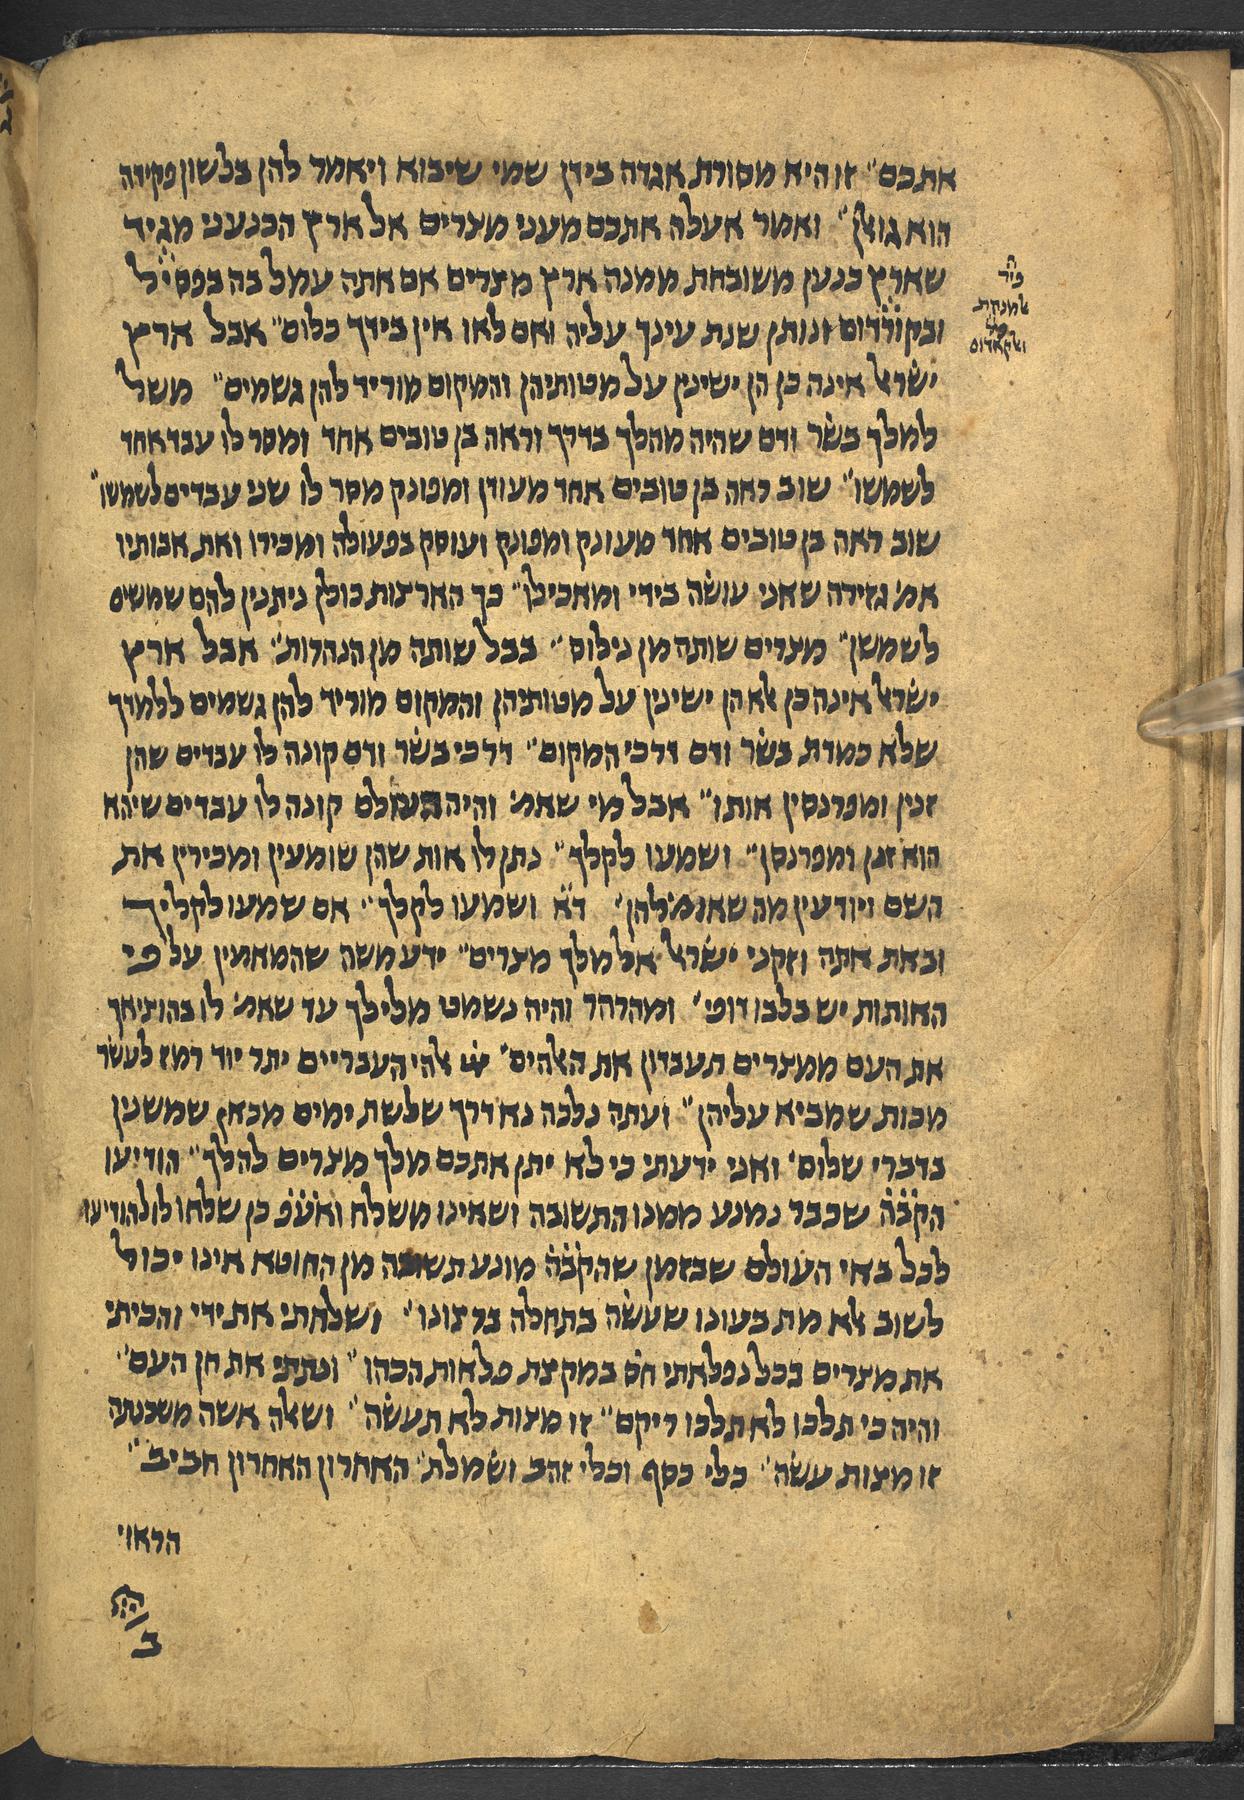 אתכם״ זו היא מסורת אגדה בידן שמי שיבוא ויאמר להן בלשון פקידה
הוא גואלן״ ואמר אעלה אתכם מעני מצרים אל ארץ הכנעני מגיד
שארץ כנען משובחת ממנה ארץ מצרים אם אתה עמל בה בפסיל
ובקורדום ונותן שנת עינך עליה ואם לאו אין בידך כלום״ אבל ארץ
ישראל אינה כן הן ישינין על מטותיהן והמקום מוריד להן גשמים״ משל
למלך בשר ודם שהיה מהלך בדרך וראה בן טובים אחד ומסר לו עבד אחד
לשמשו״ שוב ראה בן טובים אחד מעודן ומפונק מסר לו שני עבדים לשמשו״
שוב ראה בן טובים אחד מעונק ומפונק ועוסק בפעולה ומכירו ואת אבותיו
אמ׳ גזירה שאני עושה בידי ומאכילו״ כך הארצות כולן ניתנין להם שמשים
לשמשן״ מצרים שותה מן נילוס״ בבל שותה מן הנהרות״ אבל ארץ
ישראל אינה כן אלא הן ישינין על מטותיהן והמקום מוריד להן גשמים ללמדך
שלא כמדת בשר ודם דרכי המקום״ דרכי בשר ודם קונה לו עבדים שהן
זנין ומפרנסין אותו״ אבל מי שאמ׳ והיה העולם קונה לו עבדים שיהא
הוא זנן ומפרנסן״ ושמעו לקלך״ נתן לו אות שהן שומעין ומכירין את
השם ויודעין מה שאומ׳ להן״ ד״א ושמעו לקלך״ אם שמעו לקליך
ובאת אתה וזקני ישראל אל מלך מצרים״ ידע משה שהמאמין על פי
האותות יש בלבו דופי״ ומהרהר והיה נשמט מלילך עד שאמ׳ לו בהוציאך
את העם ממצרים תעבדון את האלהים״ יי׳ אלהי העבריים יתר יוד רמז לעשר
מכות שמביא עליהן״ ועתה נלכה נא דרך שלשת ימים מכאן שמשנין
בדברי שלום״ ואני ידעתי כי לא יתן אתכם מלך מצרים להלך״ הודיעו
הקבה שכבר נמנע ממנו התשובה ושאינו משלח ואעפ כן שלחו לו להודיעו
לכל באי העולם שבזמן שהקבה מונע תשובה מן החוטא אינו יכול
לשוב אלא מת בעונו שעשה בתחלה ברצונו״ ושלחתי את ידי והכיתי
את מצרים בכל נפלאתי חס במקצת פלאות הכהו״ ונתתי את חן העם״
והיה כי תלכו לא תלכו ריקם״ זו מצות לא תעשה״ ושאלה אשה משכנתה
זו מצות עשה״ כלי כסף וכלי זהב ושמלת״ האחרון האחרון חביב״
הראוי
ב